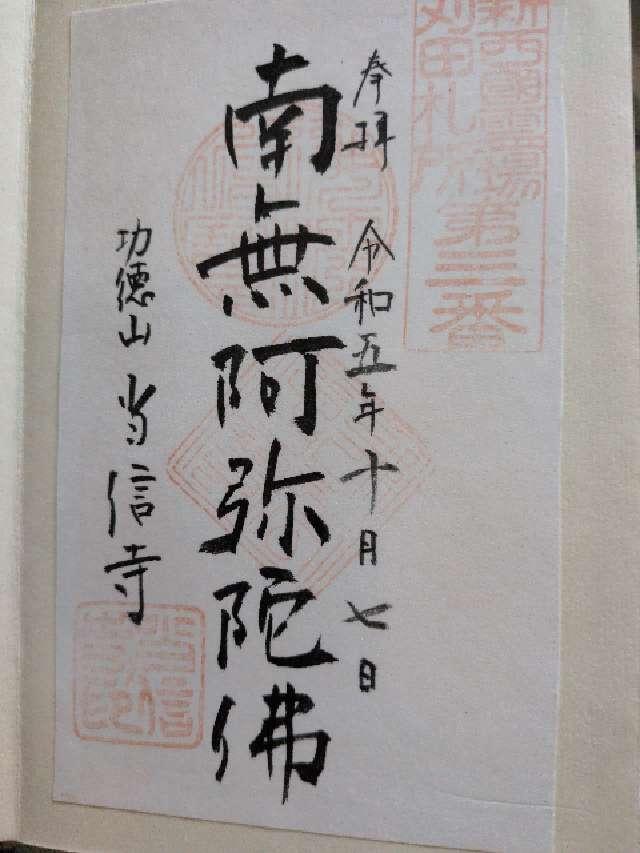 新西國霊場
刈田札所第三番
奉拝 令和五年十月七日
南無阿弥陀佛
功徳山 当信寺
當信
寺印